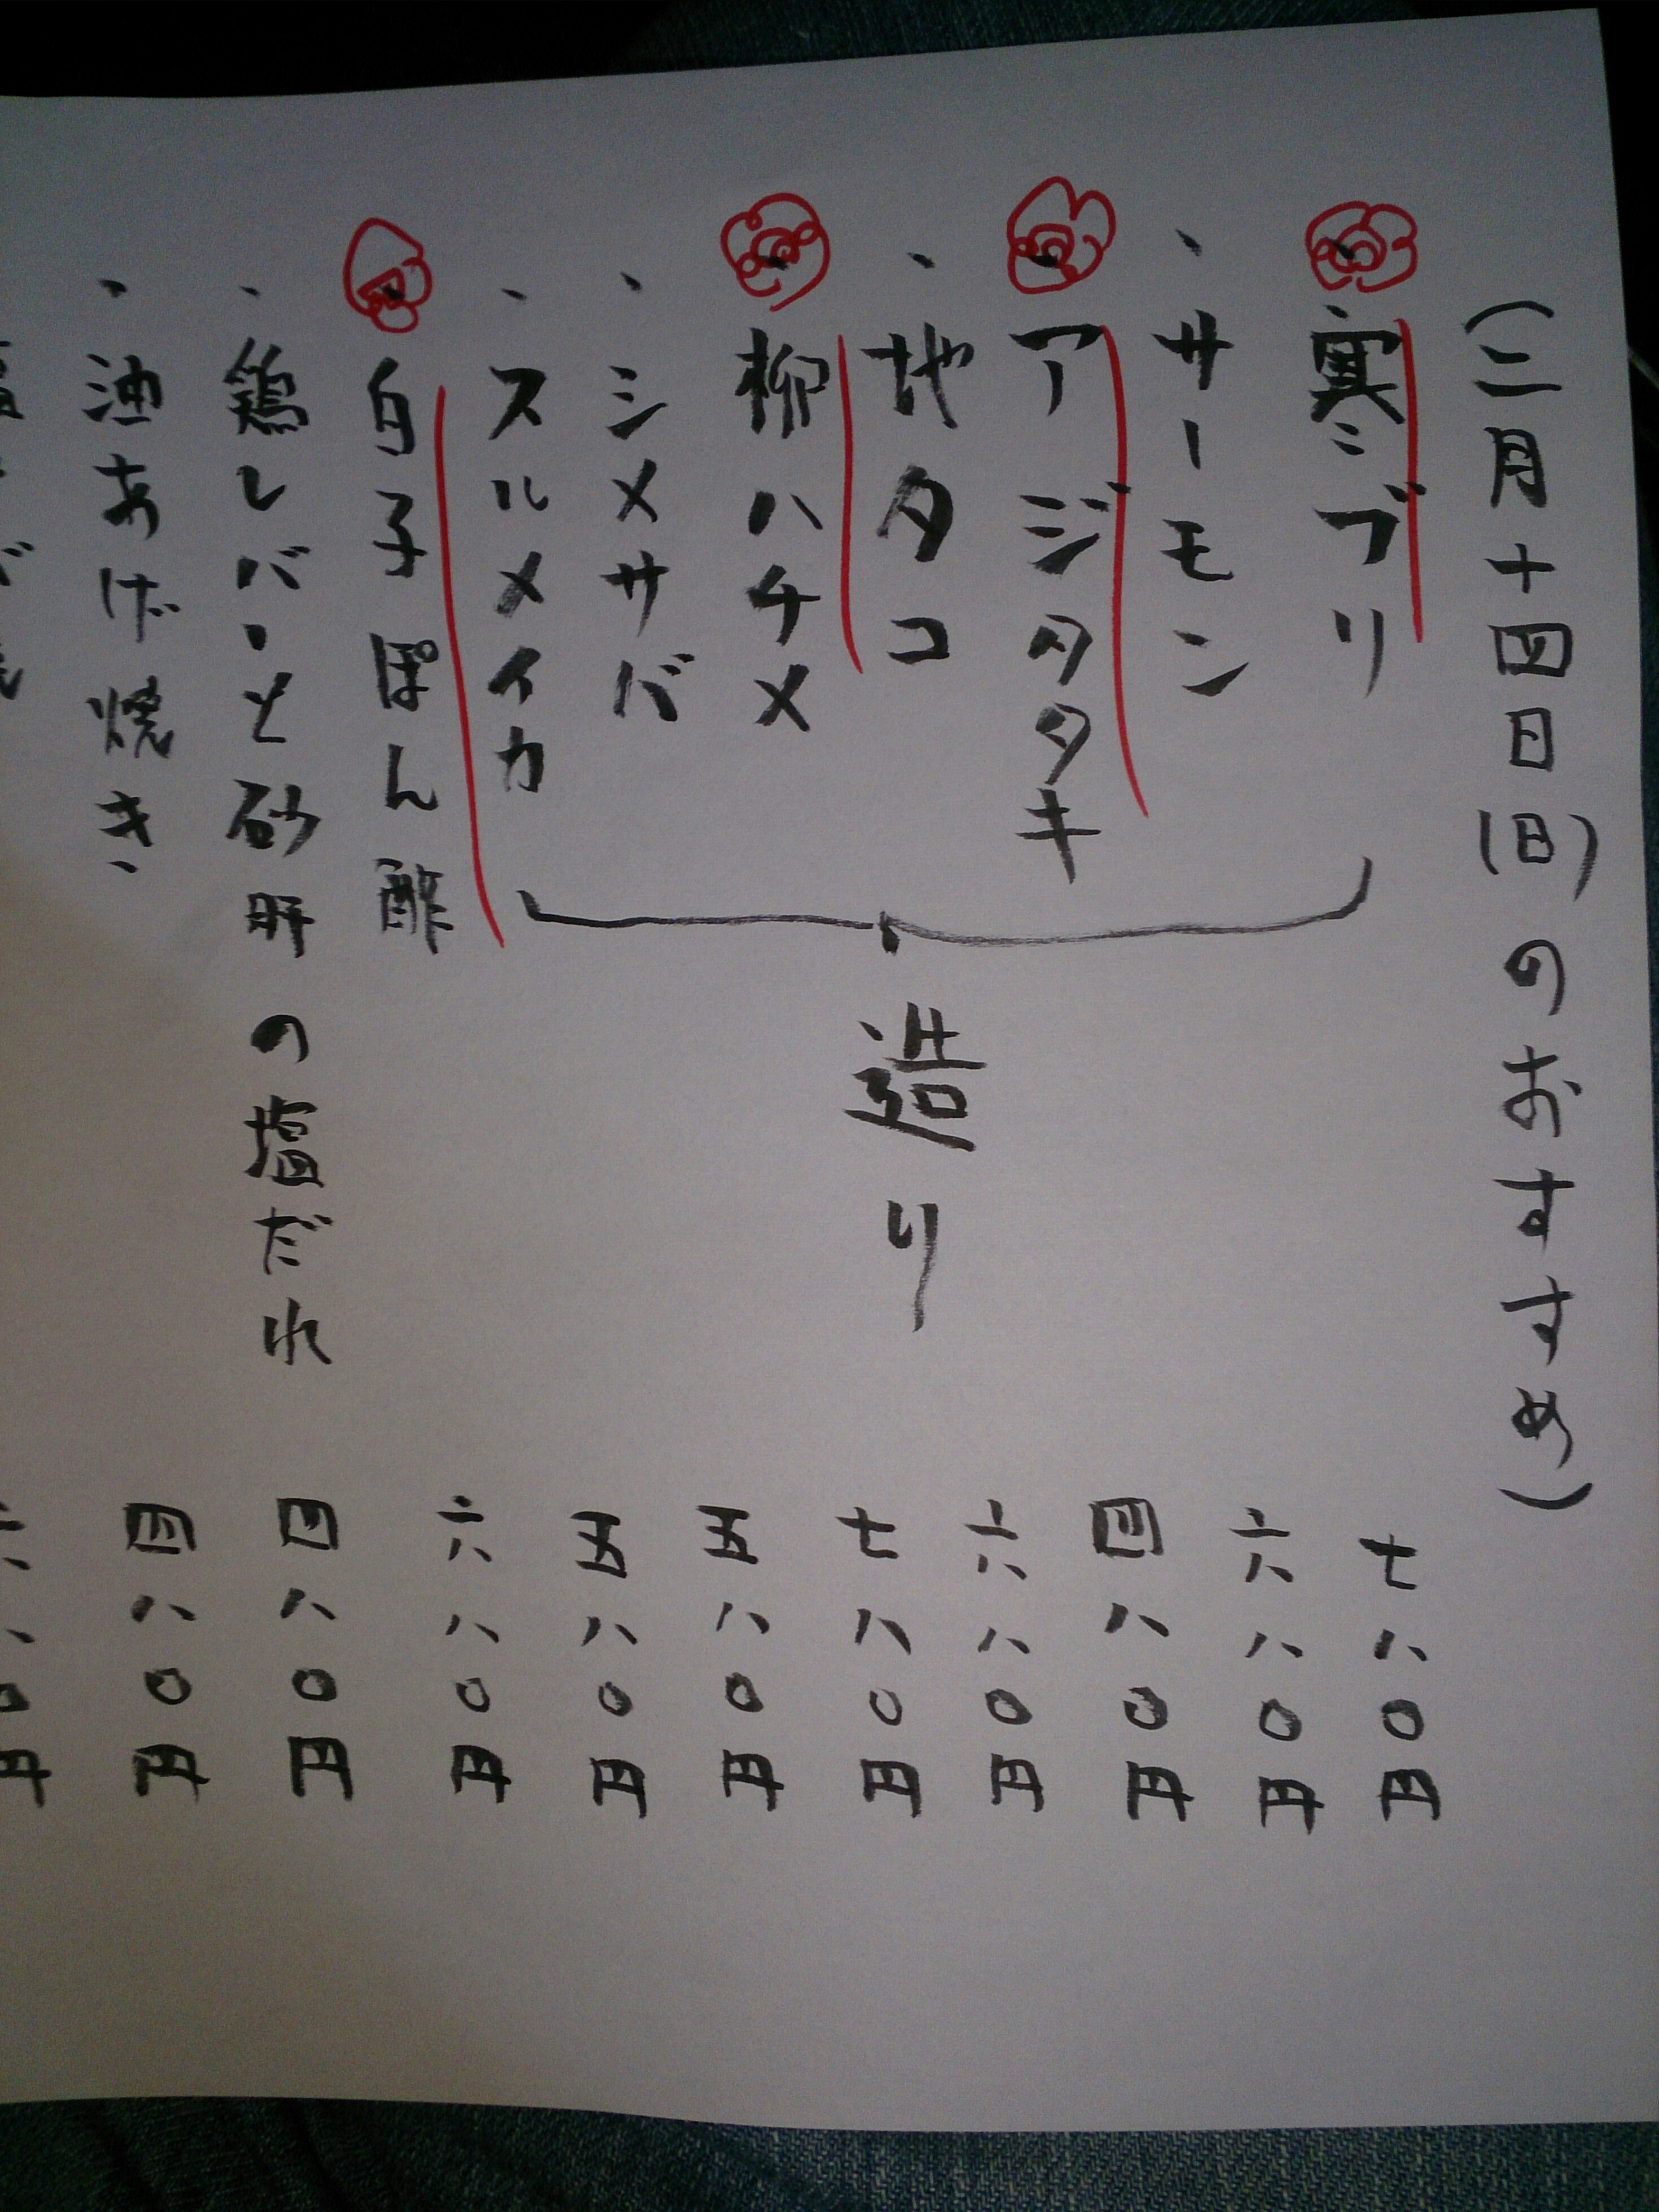 (二月十四日(日)のおすすめ)
・寒ブリ 七八〇円
・サーモン 六八〇円
・アジタタキ 四八〇円
・地タコ 六八〇円
・柳ハチメ 七八〇円
・シメサバ 五八〇円
・スルメイカ 五八〇円
造り
・白子ぽん酢 六八〇円
・鶏レバーと砂肝の塩だれ 四八〇円
・油あげ焼き 四八〇円